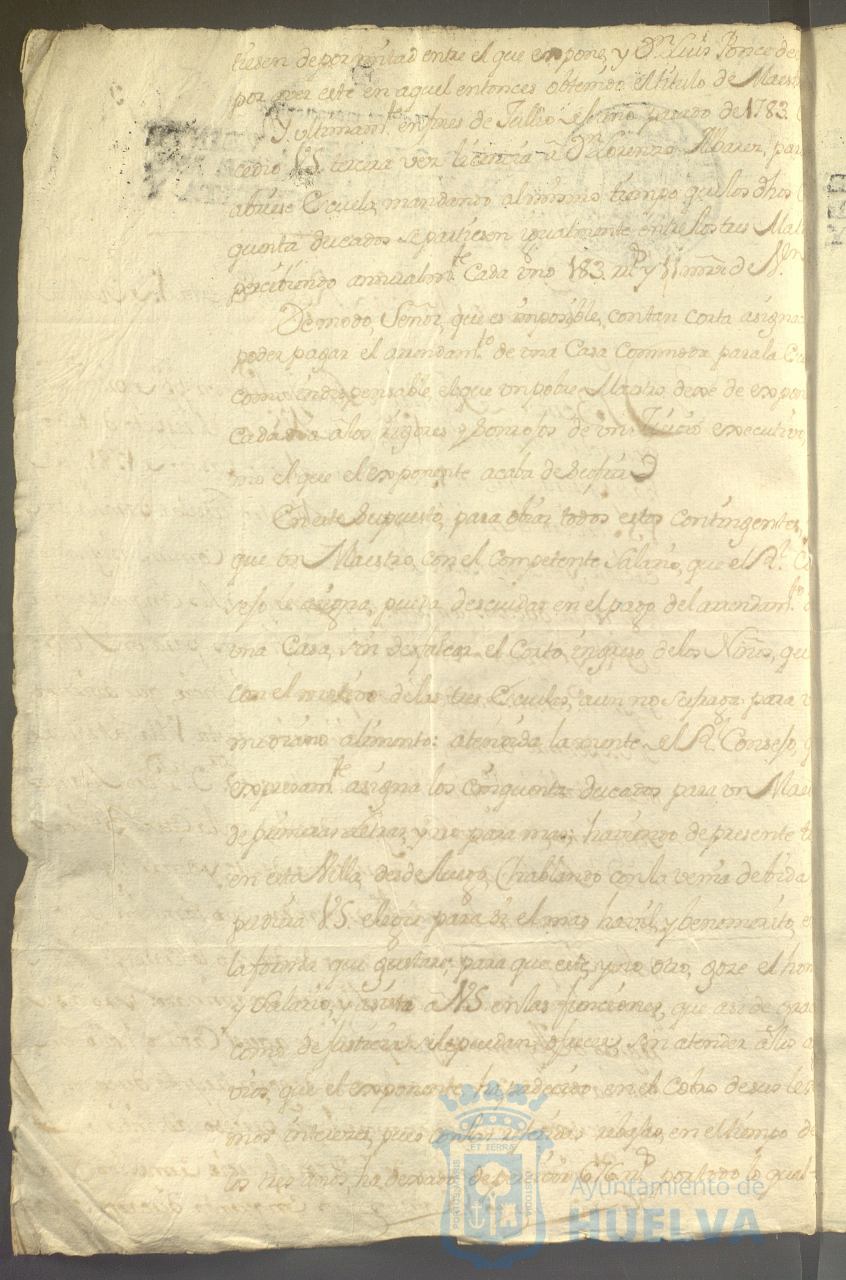 tiesen de por mitad entre el que expone, y Dn. Luis Ponce de
por aver este en aquel entonces obtenido el titulo de Maest
Y ultimamte. en mes de Jullio el año pasado de 1783.
cedio VS. tercera vez licencia a Dn. Lorenzo Albarez, para
abriese Escuela, mandando al mismo tiempo que los dhos
quenta ducados se partiesen igualmente entre los tres Ma
percibiendo annualmte. cada uno 183 rs. y 11 mrs. de Vn.
De modo, Señor, que es imposible, con tan corta asigna
poder pagar el arrendamto. de una Casa Commoda para la
como indispensable, el que un pobre Maestro dexe de expon
cada dia a los rigores y de un Juicio executiv
mo el que el exponente acaba de sufrir
En este supuesto, para obiar todos estos contingentes,
que un Maestro, con el competente Salario, que el Rl. Co
sejo le asigna, pueda descuidar en el pago del arrendamto.
una Casa, sin desfalcar el Corto ingreso de los Niños, qu
con el motivo de las tres Escuelas, aun no sufraga para
mediano alimento: atendida la mente el Rl. Consejo, q
expresamte. asigna los cinquenta ducados para un Mae
de primeras letras, y no para mas; haviendo de presente
en esta Villa, desde luego, (hablando con la venia debida
podria VS. elegir para si el mas havil, y benemerito, e
la forma que gustare; para que este, y no otro, goze el hon
y Salario, y asista a VS. en las funciones, que asi de gra
como de Justicia se le puedan ofrecer, sin atender a los
vios, que el exponente, ha padecido en el Cobro de sus le
mos intereses, pues con las referidas rebajas, en el tiempo de
los tres años, ha dexado de percivir 616 rs. por todo lo qual
PORTUS MARIS ET TERRAE CUSTODIA
Ayuntamiento de
HUELVA